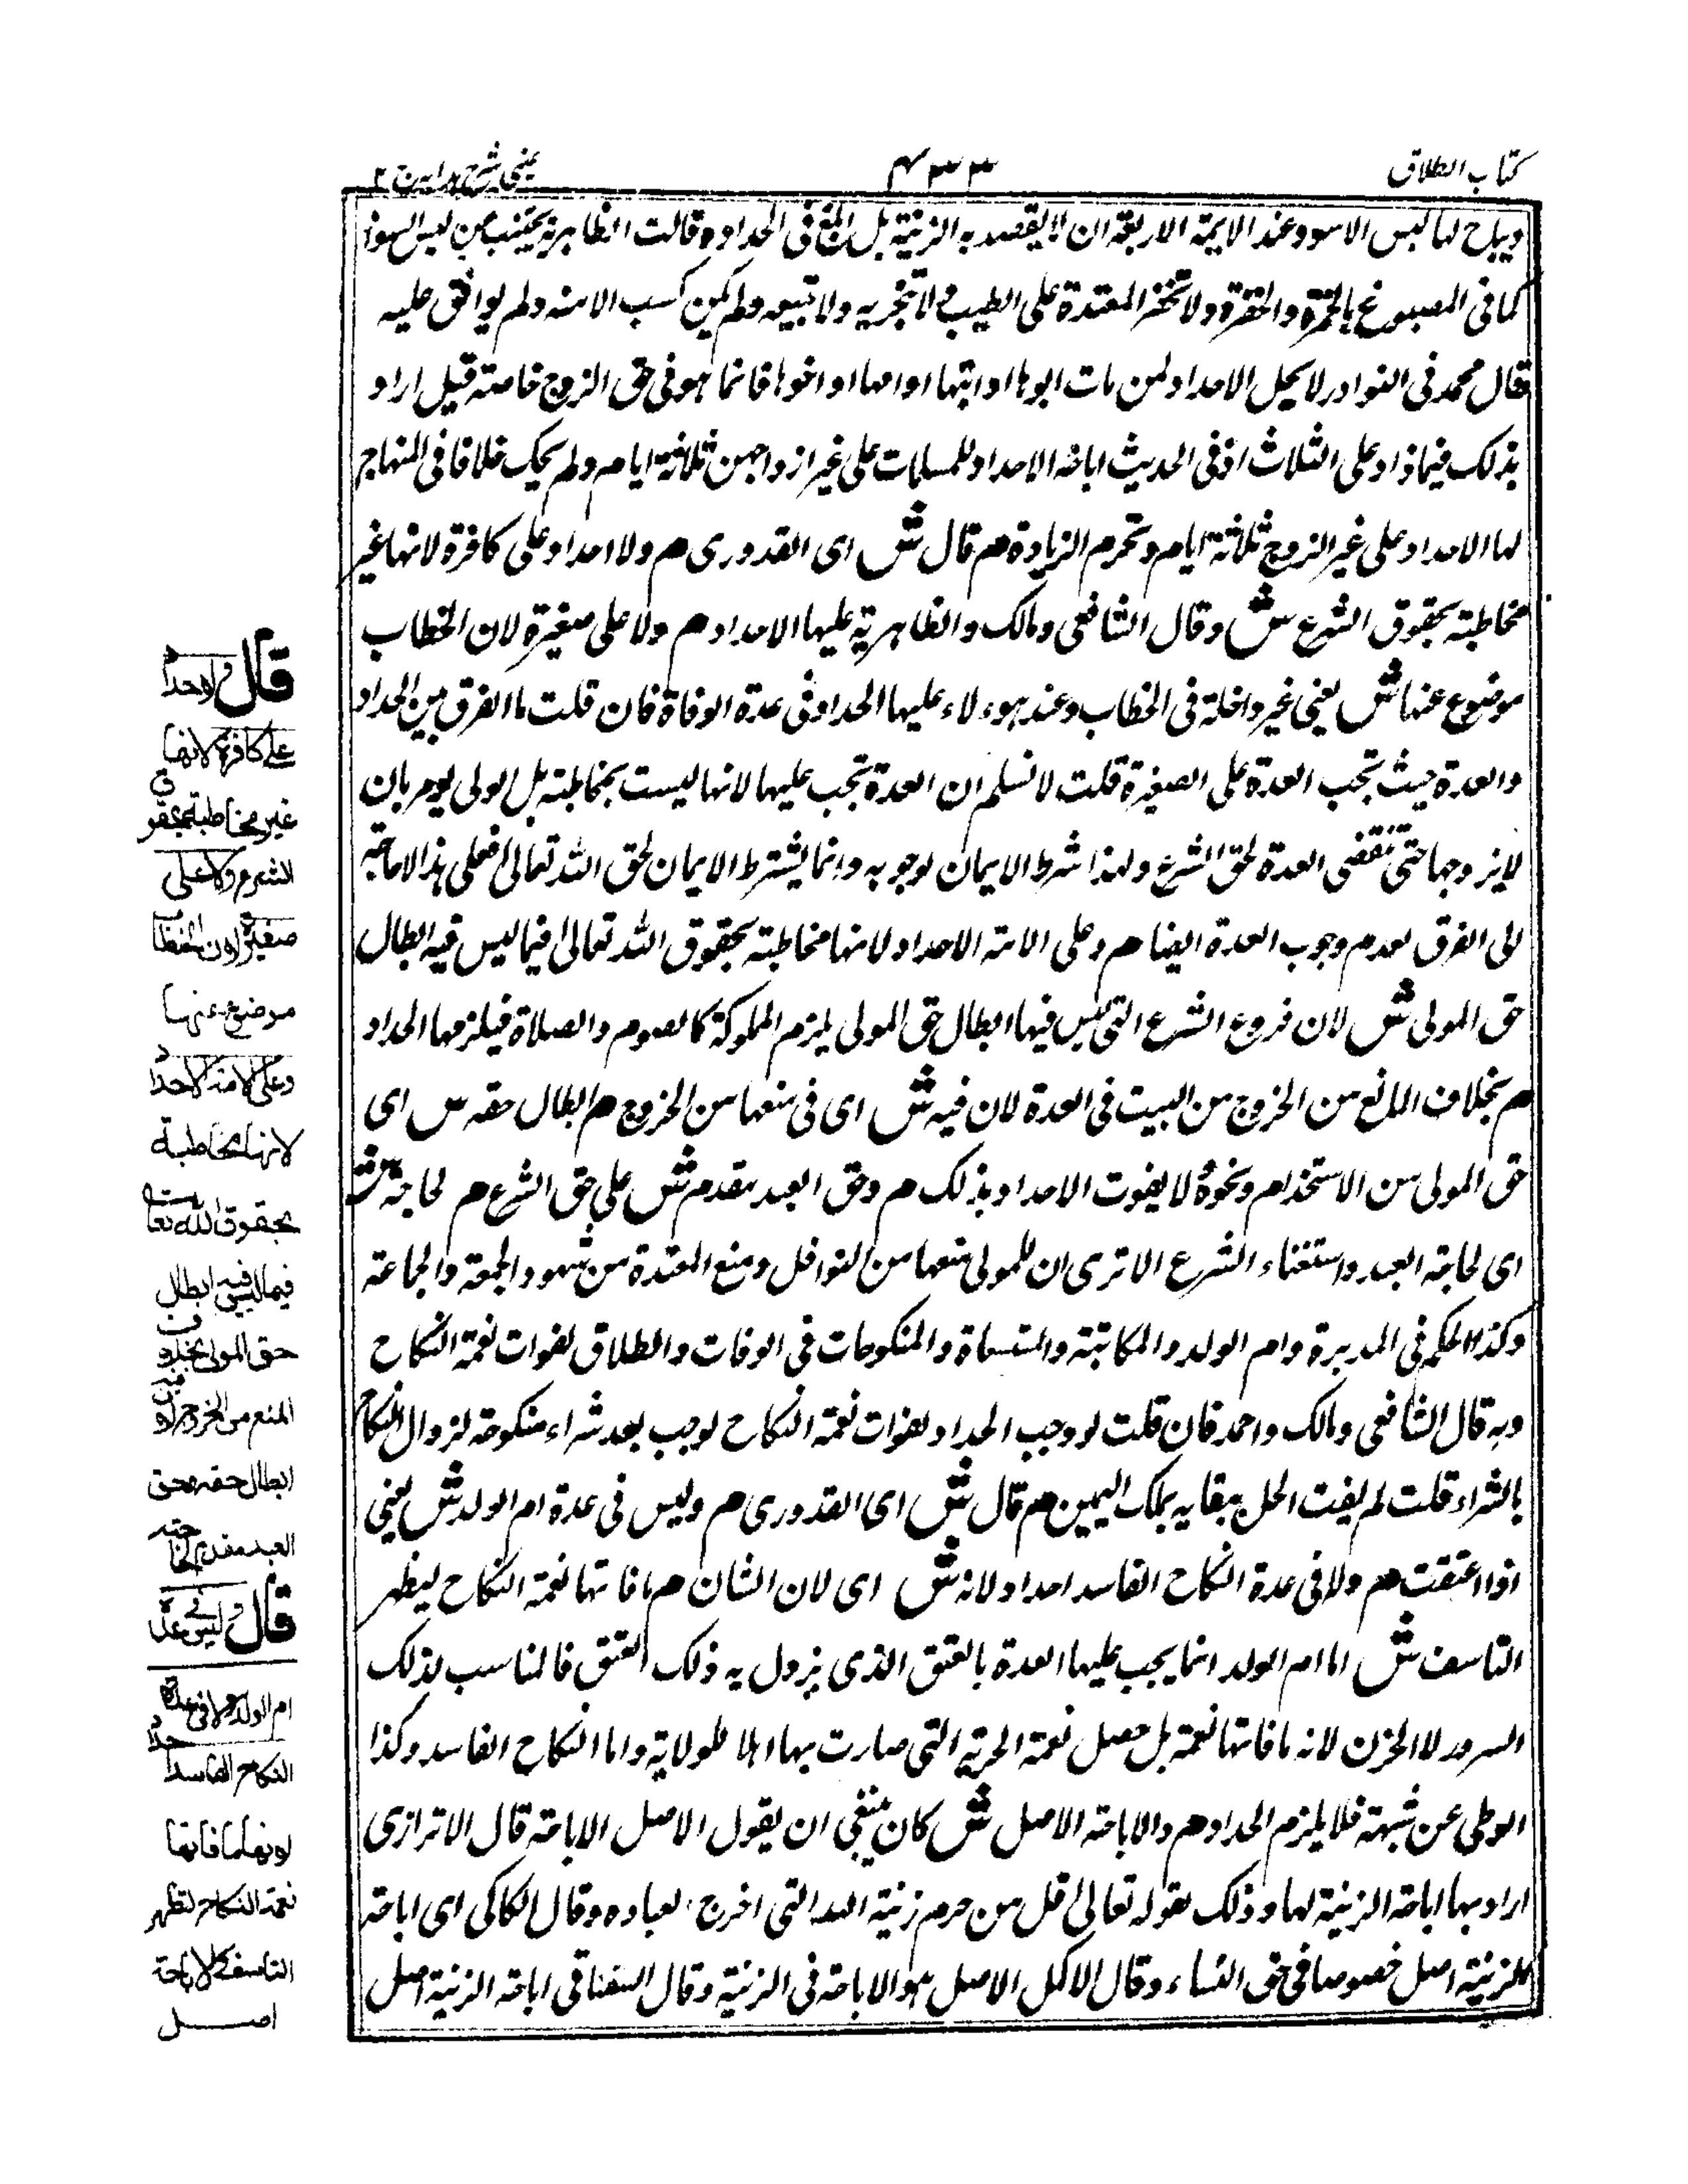 كتاب الطلاق
٤٣٣
عيني شرح هداية ج ٢
ويباح لها لبس الاسود عند الايمة الاربعة ان لا يقصد به الزينة بل في الحداد وقالت الظاهرية يجتنب عن لبس السواد
كما في المصبوغ بالحمرة والخضرة ولا تحضر المعتدة على الطيب ولا تتجر به ولا تبيعه ولم يكن كسب الا منه ولم يوافق عليه
قال محمد في النوادر لا يحل الاحداد لمن مات ابوها او ابنها او امها او اخوها فانما هو في حق الزوج خاصة قيل اراد
بذلك فيما زاد على الثلاث اذ في الحديث اباحة الاحداد للمسلمات على غير ازواجهن ثلاثة ايام ولم يحك خلافا في المنهاج
لها الاحداد على غير الزوج ثلاثة ايام وتحرم الزيادة م قال ش اى القدورى م ولا احداد على كافرة لانها غير
مخاطبة بحقوق الشرع ش وقال الشافعى ومالك والظاهرية عليها الاحداد م ولا على صغيرة لان الخطاب
موضوع عنها ش يعنى غير داخلة في الخطاب وعند هوءلاء عليها الحداد في عدة الوفاة فان قلت ما الفرق بين الحداد
والعدة حيث تجب العدة على الصغيرة قلت لا نسلم ان العدة تجب عليها لانها ليست بمخاطبة بل الولى يومر بان
لا يزوجها حتى تنقضى العدة لحق الشرع ولهذا شرط الايمان لوجوبه وانما يشترط الايمان لحق الله تعالى فعلى هذا لا حاجة
الى الفرق لعدم وجوب العدة ايضا م وعلى الامة الاحداد لانها مخاطبة بحقوق الله تعالى فيما ليس فيه ابطال
حق المولى ش لان فروع الشرع التى ليس فيها ابطال حق المولى يلزم المملوكة كالصوم والصلاة فيلزمها الحداد
م بخلاف المانع من الخروج من البيت في العدة لان فيه ش اى في منعها من الخروج م ابطال حقه ش اى
حق المولى من الاستخدام ونحوه لا يفوت الاحداد بذلك م وحق العبد مقدم ش على حق الشرع م لحاجته ش
اى لحاجة العبد واستغناء الشرع الا ترى ان للمولى منعها من النوافل ومنع المعتدة من شهود الجمعة والجماعة
وكذا الحكم في المدبرة وام الولد والمكاتبة والمستسعاة والمنكوحات في الوفات والطلاق لفوات نعمة النكاح
وبه قال الشافعى ومالك واحمد فان قلت لو وجب الحداد لفوات نعمة النكاح لوجب بعد شراء منكوحة لزوال النكاح
بالشراء قلت لم يفت الحل ببقايه بملك اليمين م قال ش اى القدورى م وليس في عدة ام الولد ش يعنى
اذا اعتقت م ولا في عدة النكاح الفاسد احداد لانه ش اى لان الشان م ما فاتها نعمة النكاح ليظهر
التاسف ش اما ام الولد انما يجب عليها العدة بالعتق الذى يزول به ذلك العتق فالمناسب لذلك
السرور لا الحزن لانه ما فاتها نعمة بل حصل نعمة الحرية التى صارت بها اهلا للولاية واما النكاح الفاسد وكذا
الوطى عن شبهة فلا يلزم الحداد م والاباحة الاصل ش كان ينبغى ان يقول الاصل الاباحة قال الاترازى
اراد بها اباحة الزينة لها وذلك لقوله تعالى قل من حرم زينة الله التى اخرج لعباده وقال الكاكى اى اباحة
للزينة اصل خصوصا في حق النساء وقال الاكمل الاصل هو الاباحة في الزينة وقال السغناقى اباحة الزينة اصل
قال ولا حداد
على كافرة لانها
غير مخاطبة بحقوق
الشرع ولا على
صغيرة لان الخطاب
موضوع عنها
وعلى الامة الاحداد
لانها مخاطبة
بحقوق الله تعالى
فيما ليس فيه ابطال
حق المولى بخلاف
المنع من الخروج لان فيه
ابطال حقه وحق
العبد مقدم لحاجته
قال وليس في عدة
ام الولد ولا في عدة
النكاح الفاسد احداد
لانها ما فاتها
نعمة النكاح لتظهر
التاسف والاباحة
اصل